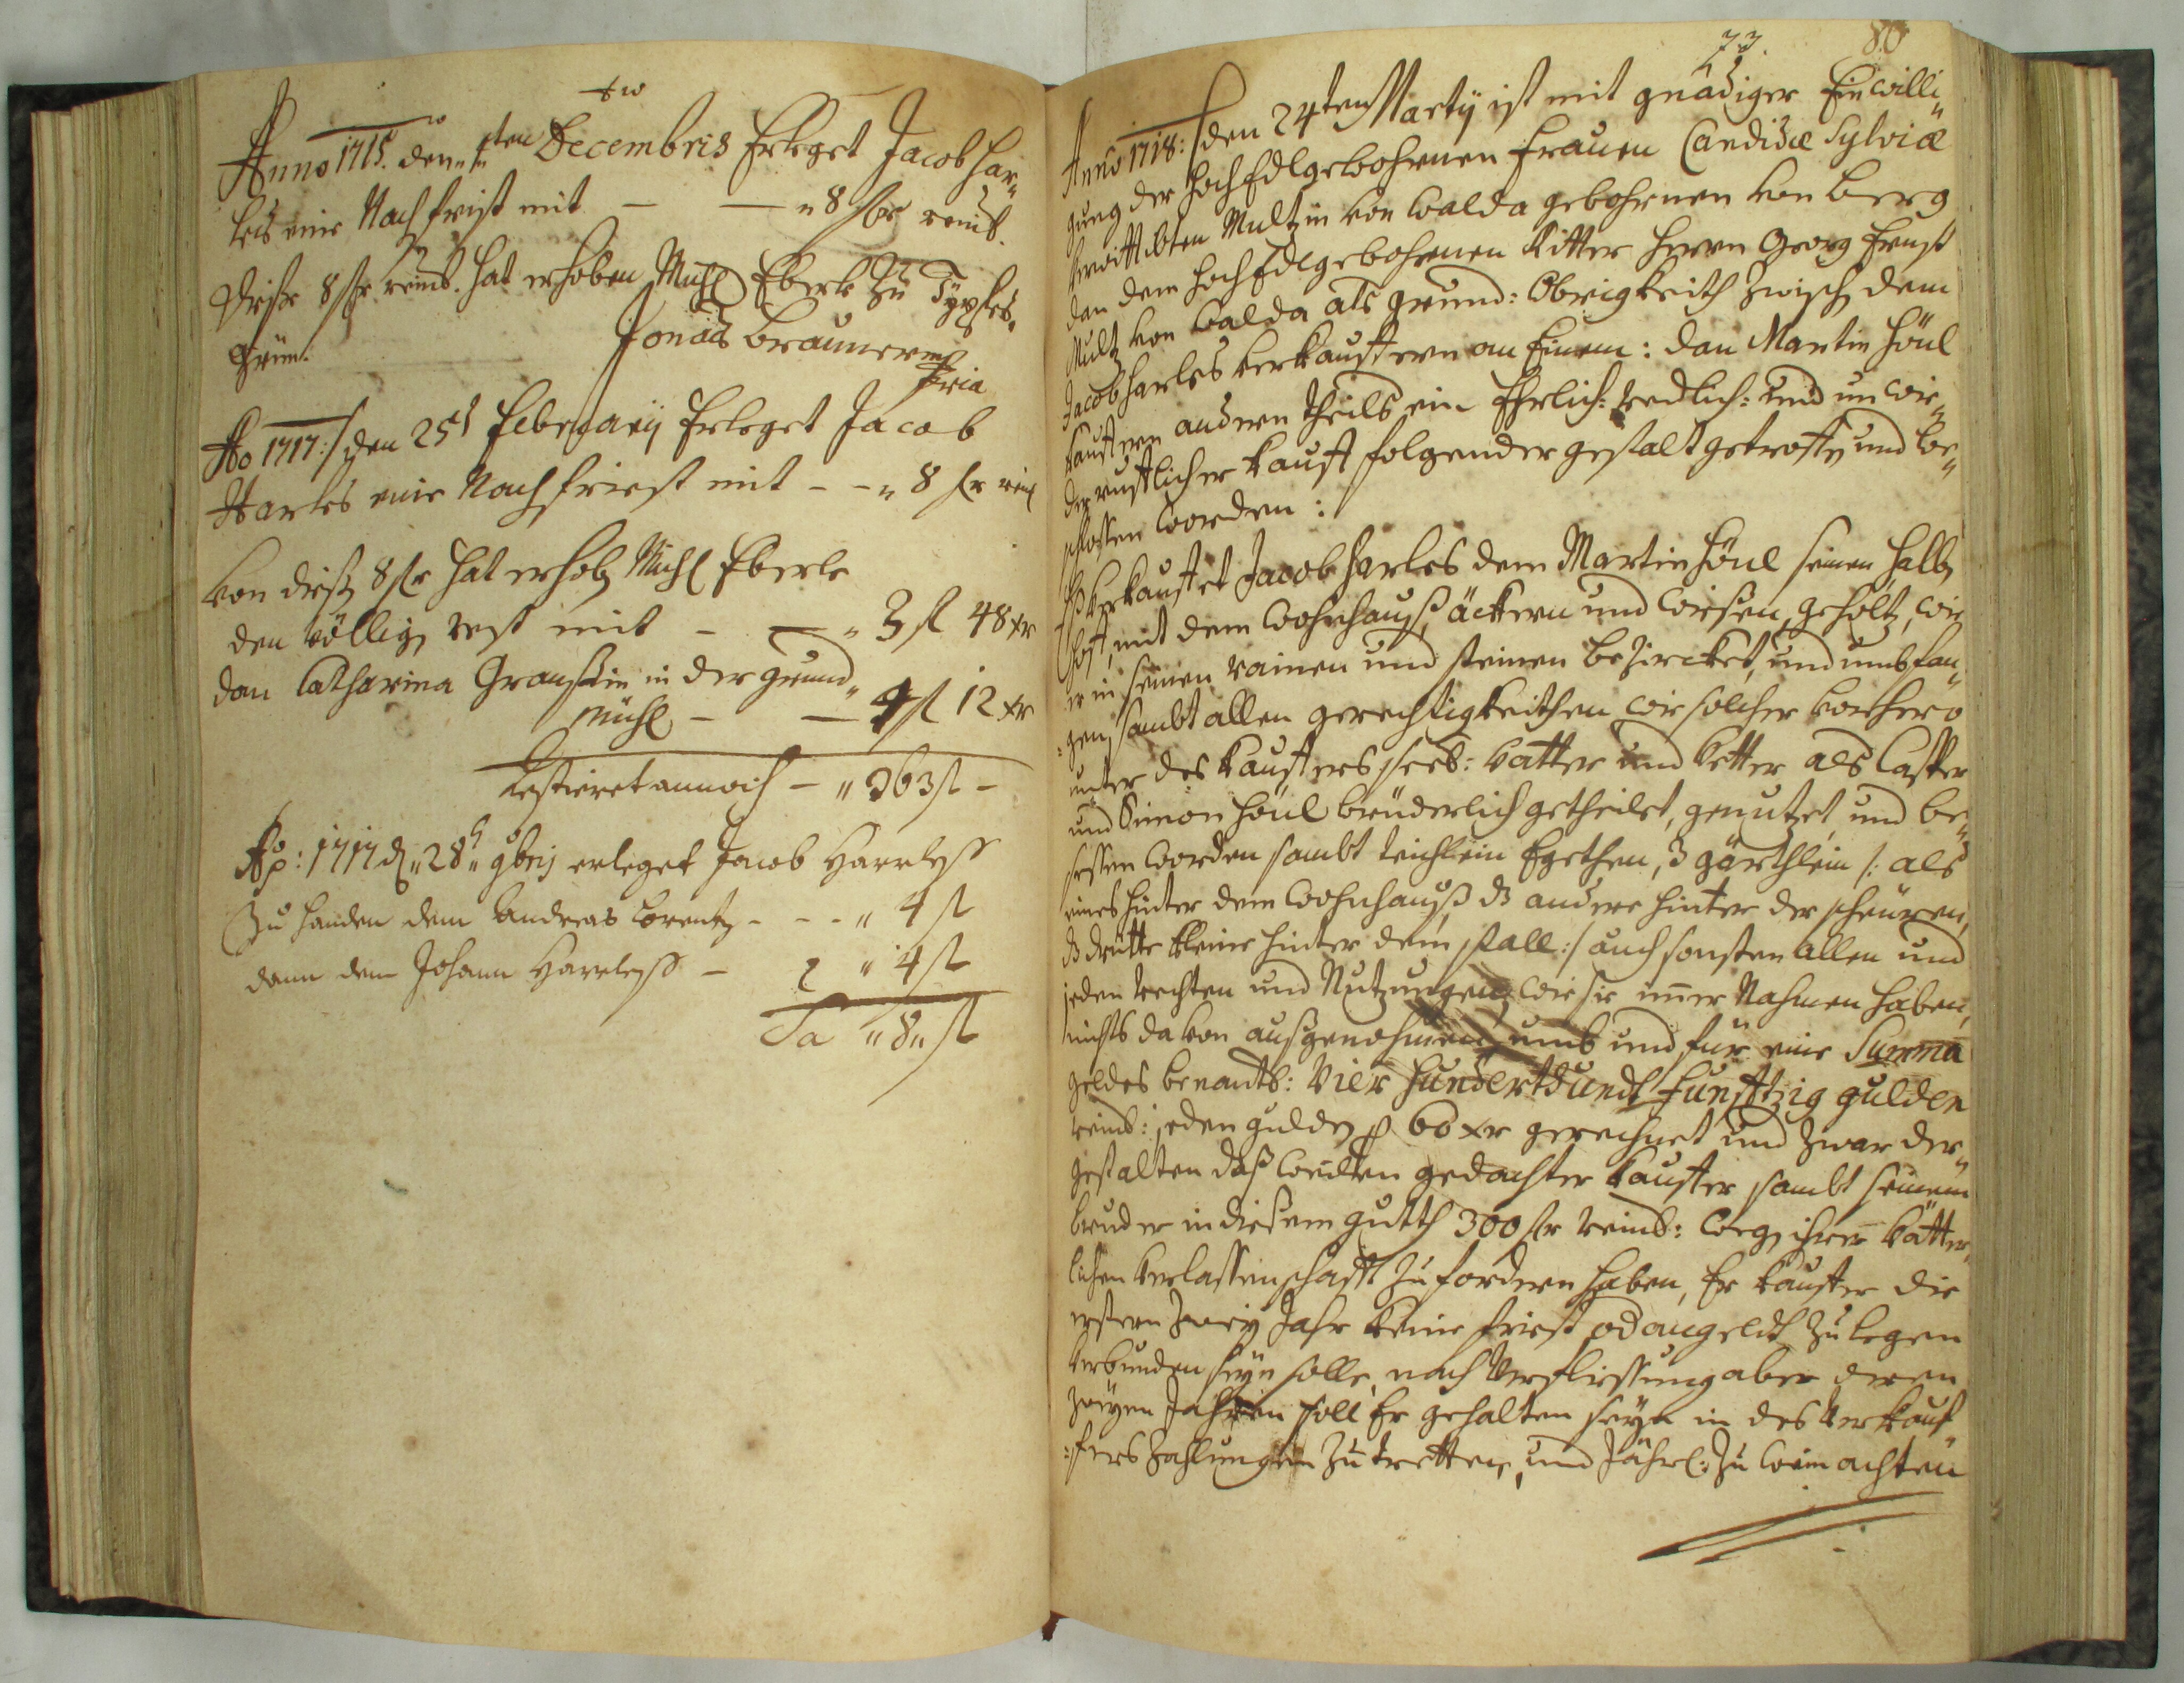 Anno 1715. den ten Decembris Erleget Jacob Har„
les eine Nachfrist mit — — „ 8 fl reinl.
diese 8 fl reinl. hat erhoben Michl Eberl zu
grün.
Jonas Brauner mp
Ao 1717: den 25t February Erleget Jacob
Harles eine Nachfriest mit - - „ 8 fl reinl
von diesen 8 fl hat erhoben Michl Eberle
den völligen rest mit - — „ 3 fl 48 xr
dan Catharina in der grund„
mühl - — 4 fl 12 xr
Restieret annoch - „ 363 fl -
Ao: 1717 d „ 28 „ 9bris erleget Jacob Harrless
Zu handen dem Andreas Lorentz - - - „ 4 fl
dann dem Johann Harrless - „ 4 fl
Sa „ 8 „ fl
77. 80
Anno 1718: den 24ten Marty ist mit gnädiger Einwilli„
gung der HochEdlgebohrnen Frauen Candidæ Sylviæ
verwittibten Multzin von Walda gebohrnen von Berg
dan dem HochEdlgebohrnen Ritter Herrn Georg Ernst
Multz von Walda als grund: Obrigkeith zwischen dem
Jacob Harles verkauffern an Einem: dan Martin Höul
kauffern andern theils ein Ehrlich: redlich: und unwie„
derrufflicher kauff folgender gestalt getroffen und be„
schlossen worden:
Es verkauffet Jacob Harles dem Martin Höul seinen halben
hoff, mit dem Wohnhauß, äckern und Wiesen, geholtz, wie
er in seinen rainen und steinen bezircket, und umbfan„
gen, sambt allen gerechtigkeithen wie solcher vorhero
unter des kauffers seel: vatter und vetter als Casper
und Simon Höul brüderlich getheilet, genutzet, und be„
sessen worden sambt teichlein Egethen, 3 gärthlein /: als
eines hinter dem Wohnhauß, ds andere hinter der scheüren,
ds dritte kleine hinter dem stall :/ auch sonsten allen und
jeden rechten und Nutzungen, wie sie immer Nahmen haben,
nichts davon außgenohmen, umb und für eine Summa
geldes benantl: Vier hundert undt Funfftzig gulden
reinl: jeden gulden p 60 xr gerechnet und zwar der„
gestalten daß weillen gedachter kauffer sambt seinem
bruder in diesem gutth 300 fl reinl: wegen ihrer vätter„
lichen verlassenschafft zu fordern haben, Er kauffer die
erstern zwey Jahr keine friest od angeldt zu legen
verbunden seyn solle, nach verfliessung aber deren
zweyen Jahren soll Er gehalten seyn in des verkauf„
fers Zahlungen zu tretten, und Jährl: zu Weinachten